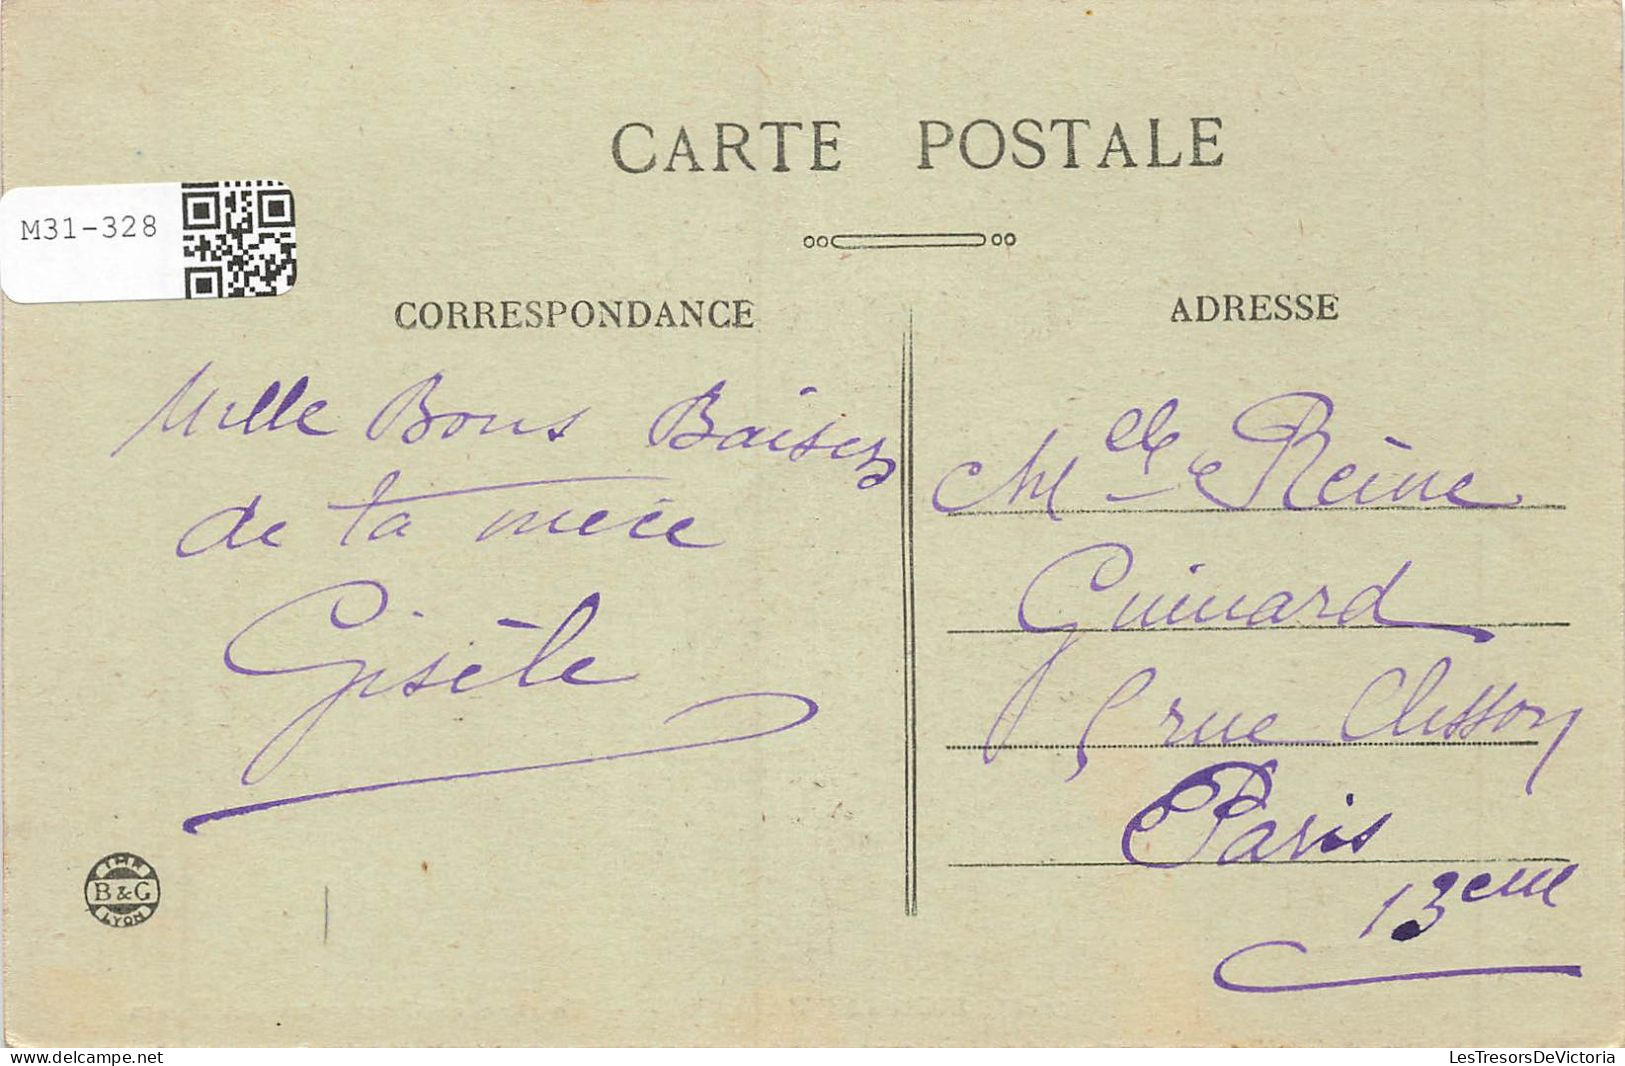 CARTE POSTALE
M31-328
CORRESPONDANCE
Mille Bons Baisers
de ta mère
Gisèle
IMP
B & G
LYON
ADRESSE
Melle Reine
Guimard
5 rue Clisson
Paris
13eme
delcampe.net
LesTresorsDeVictoria